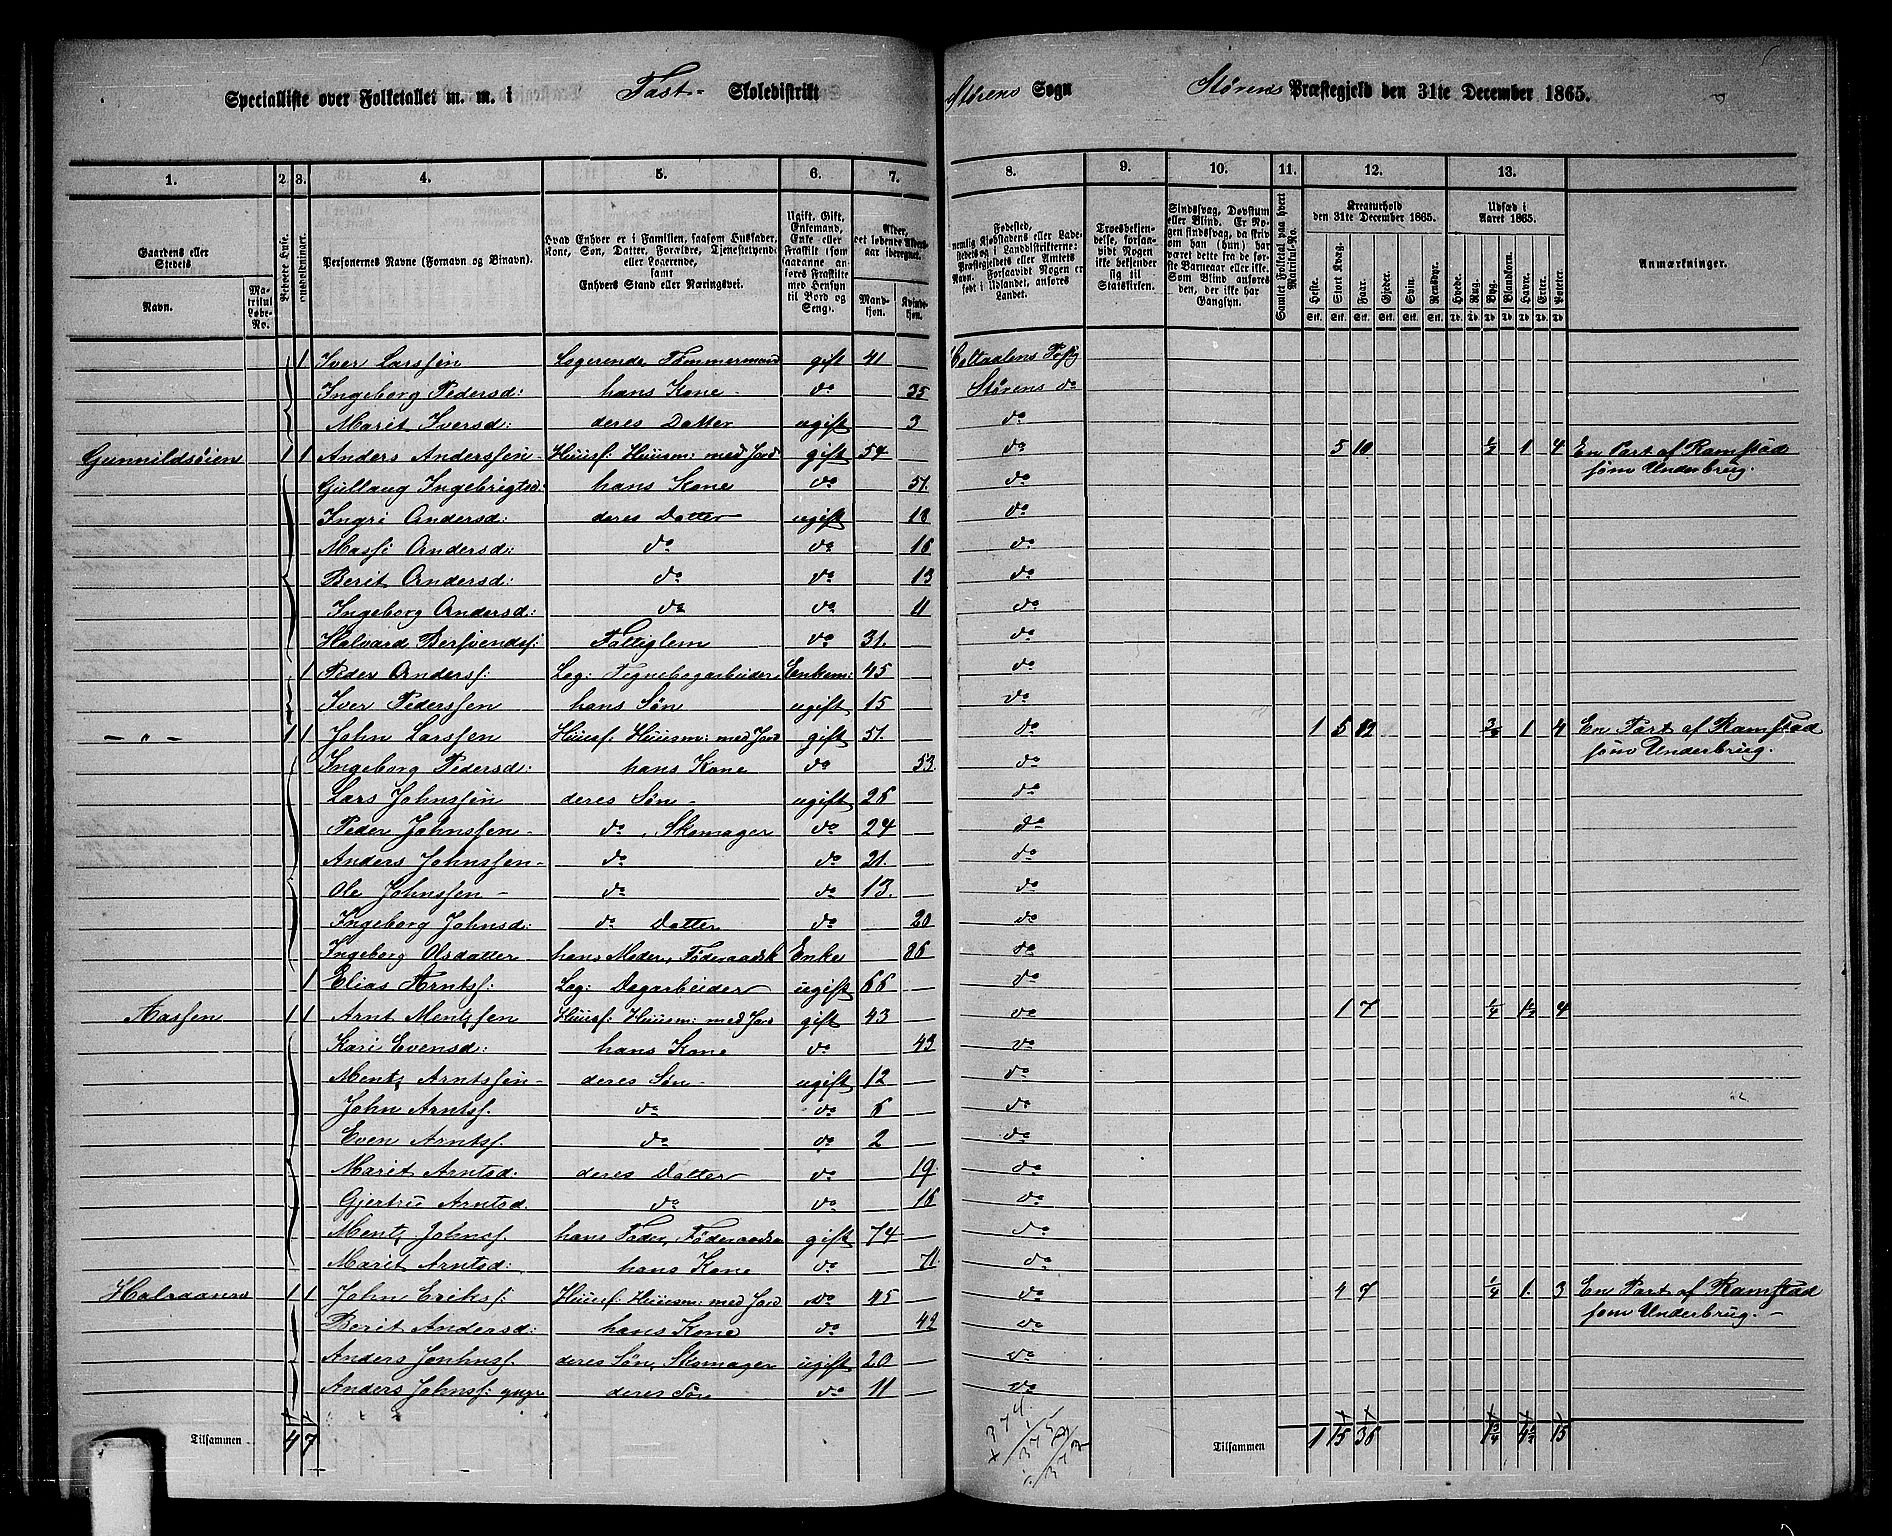 Specialliste over Folketallet m. m. i Fast- Skoledistrikt Størens Sogn Størens Præstegjeld den 31te December 1865.
1. 2. 3. 4. 5. 6. 7. 8. 9. 10. 11. 12. 13.
Gaardens eller Stedets
Navn.
Matrikul Løbe-No.
Beboede Huse.
Huusholdninger.
Personernes Navne (Fornavn og Binavn).
Hvad Enhver er i Familien, saasom Husfader, Kone, Søn, Datter, Forældre, Tjenestetyende eller Logerende, samt Enhvers Stand eller Næringsvei.
Ugift, Gift, Enkemand, Enke eller Fraskilt
Alder, det løbende Alders-aar iberegnet.
Mandkjøn. Kvindekjøn.
Fødested,
Troesbekjendelse, forsaavidt Nogen ikke bekjender sig til Statskirken.
Sindssvag, Døvstum eller Blind.
Samlet Folketal paa hvert Matrikul-No.
Kreaturhold den 31te December 1865.
Heste. Stort Kvæg. Faar. Gjeder. Svin. Rensdyr.
Udsæd i Aaret 1865.
Hvede. Rug. Byg. Blandkorn. Havre. Erter. Poteter.
Anmærkninger.
1 Iver Larssen Logerende, Tømmermand gift 41
Ingeborg Pedersd: hans Kone do 35 Størens do
Marit Iversd: deres Datter ugift 3 do
Gunnildsöien 1 1 Anders Anderssen Huusf: Huusm: med Jord gift 54 do 5 10 ½ 1 4 En Part af Ramstad
som Underbrug.
Gullaug Ingebrigtsd: hans Kone do 51. do
Ingri Andersd: deres Datter ugift 18 do
Massi Andersd: do do 16 do
Berit Andersd: do do 13 do
Ingeborg Andersd: do do 11 do
Halvard Bersvendsf: Fattiglem do 31. do
1 Peder Andersf: Log: Enkem: 45 do
Iver Pederssen hans Søn ugift 15 do
— " — 1 1 John Larssen Huusf: Huusm: med Jord gift 51. do 1 5 12 ¾ 1 4 En Part af Ramstad
som Underbrug.
Ingeborg Pedersd: hans Kone do 53. do
Lars Johnssen deres Søn - ugift 26 do
Peder Johnssen - do, Skomager do 24 do
Anders Johnssen - do do 21. do
Ole Johnssen - do do 13. do
Ingeborg Johnsd: do Datter do 20 do
Ingeborg Olsdatter hans Moder, Föderaadsk Enke 86 do
1 Elias Arntsf: Log: Dagarbeider ugift 66 do
Aassen 1 1 Arnt Mentzsen Huusf: Huusm: med Jord gift 43 do 1 7 ¼ 1½ 4
Kari Evensd: hans Kone do 43 do
Mentz Arntssen - deres Søn - ugift 12 do
John Arntsf. do do 6 do
Even Arntsf. do do 2 do
Marit Arntsd. deres Datter do 19. do
Gjertru Arntsd. do do 16 do
Mentz Johnsf. hans Fader, Föderaadsm gift 74 do
Marit Arntsd: hans Kone do 71 do
1 1 John Eriksf: Huusf: Huusm: med Jord do 45 do 4 7 ¼ 1. 3 En Part af Ramstad
som Underbrug.
Berit Andersd: hans Kone do 42 do
Anders Johnsf. deres Søn, Skomager ugift 20 do
Anders Johnsf: yngr deres Søn do 11 do
Tilsammen 4 7 Tilsammen 1 15 36 1¾ 4½ 15